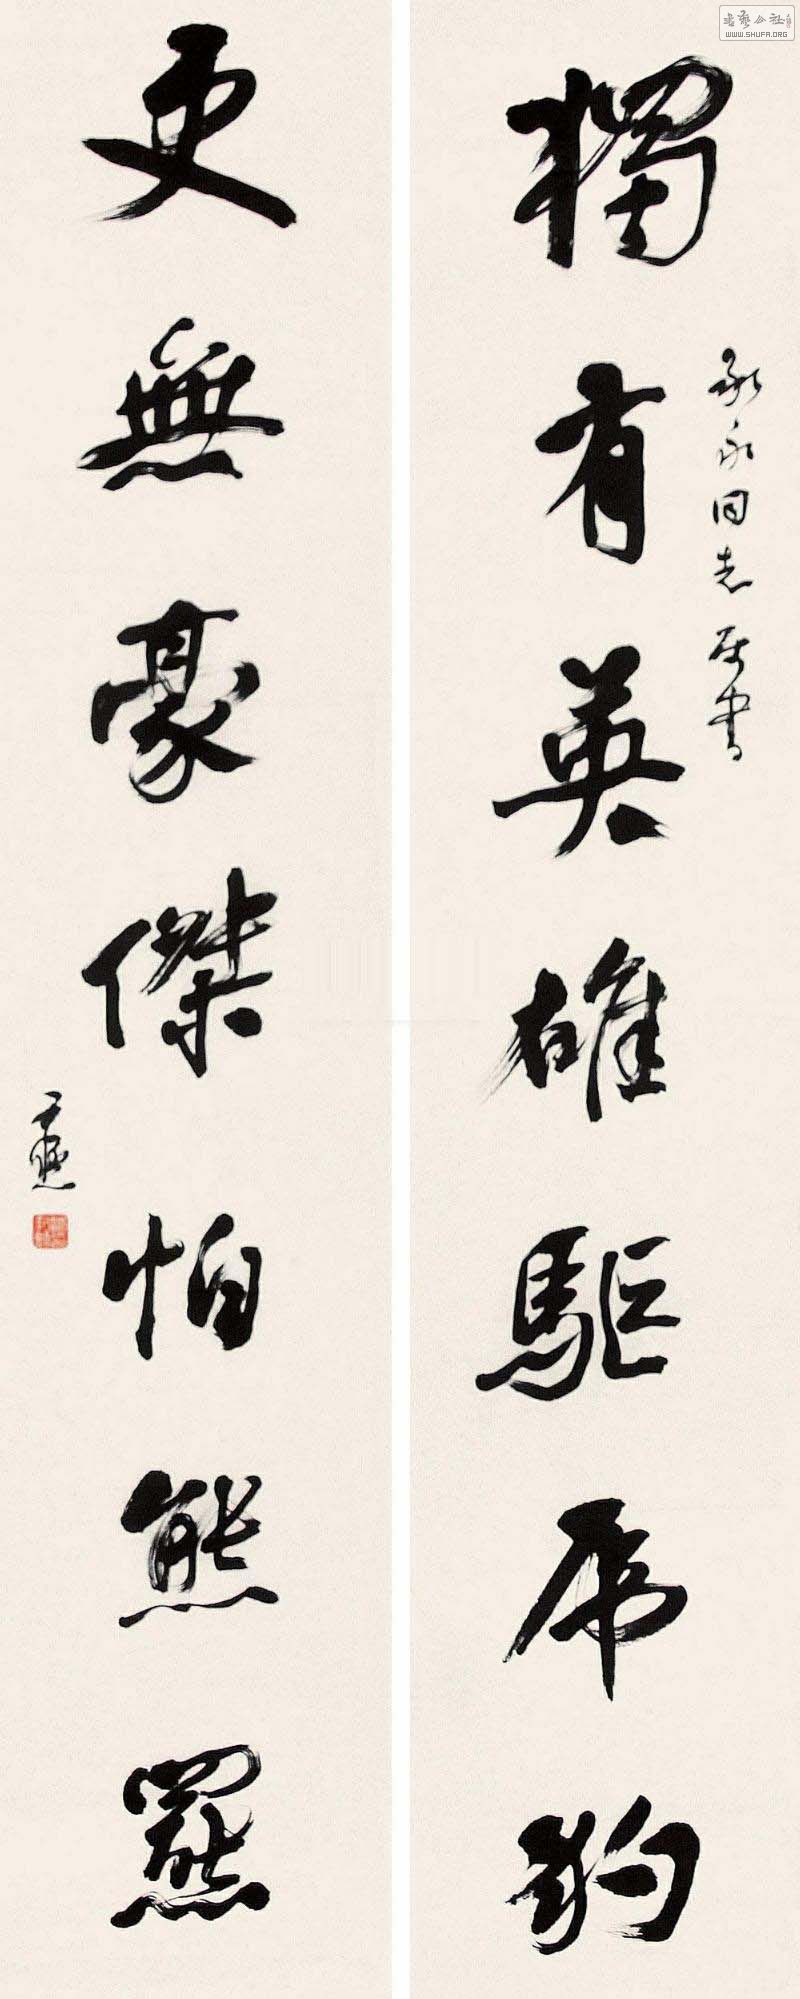 獨有英雄驅虎豹
承永同志屬書
更無豪傑怕熊羆
WWW.SHUFA.ORG